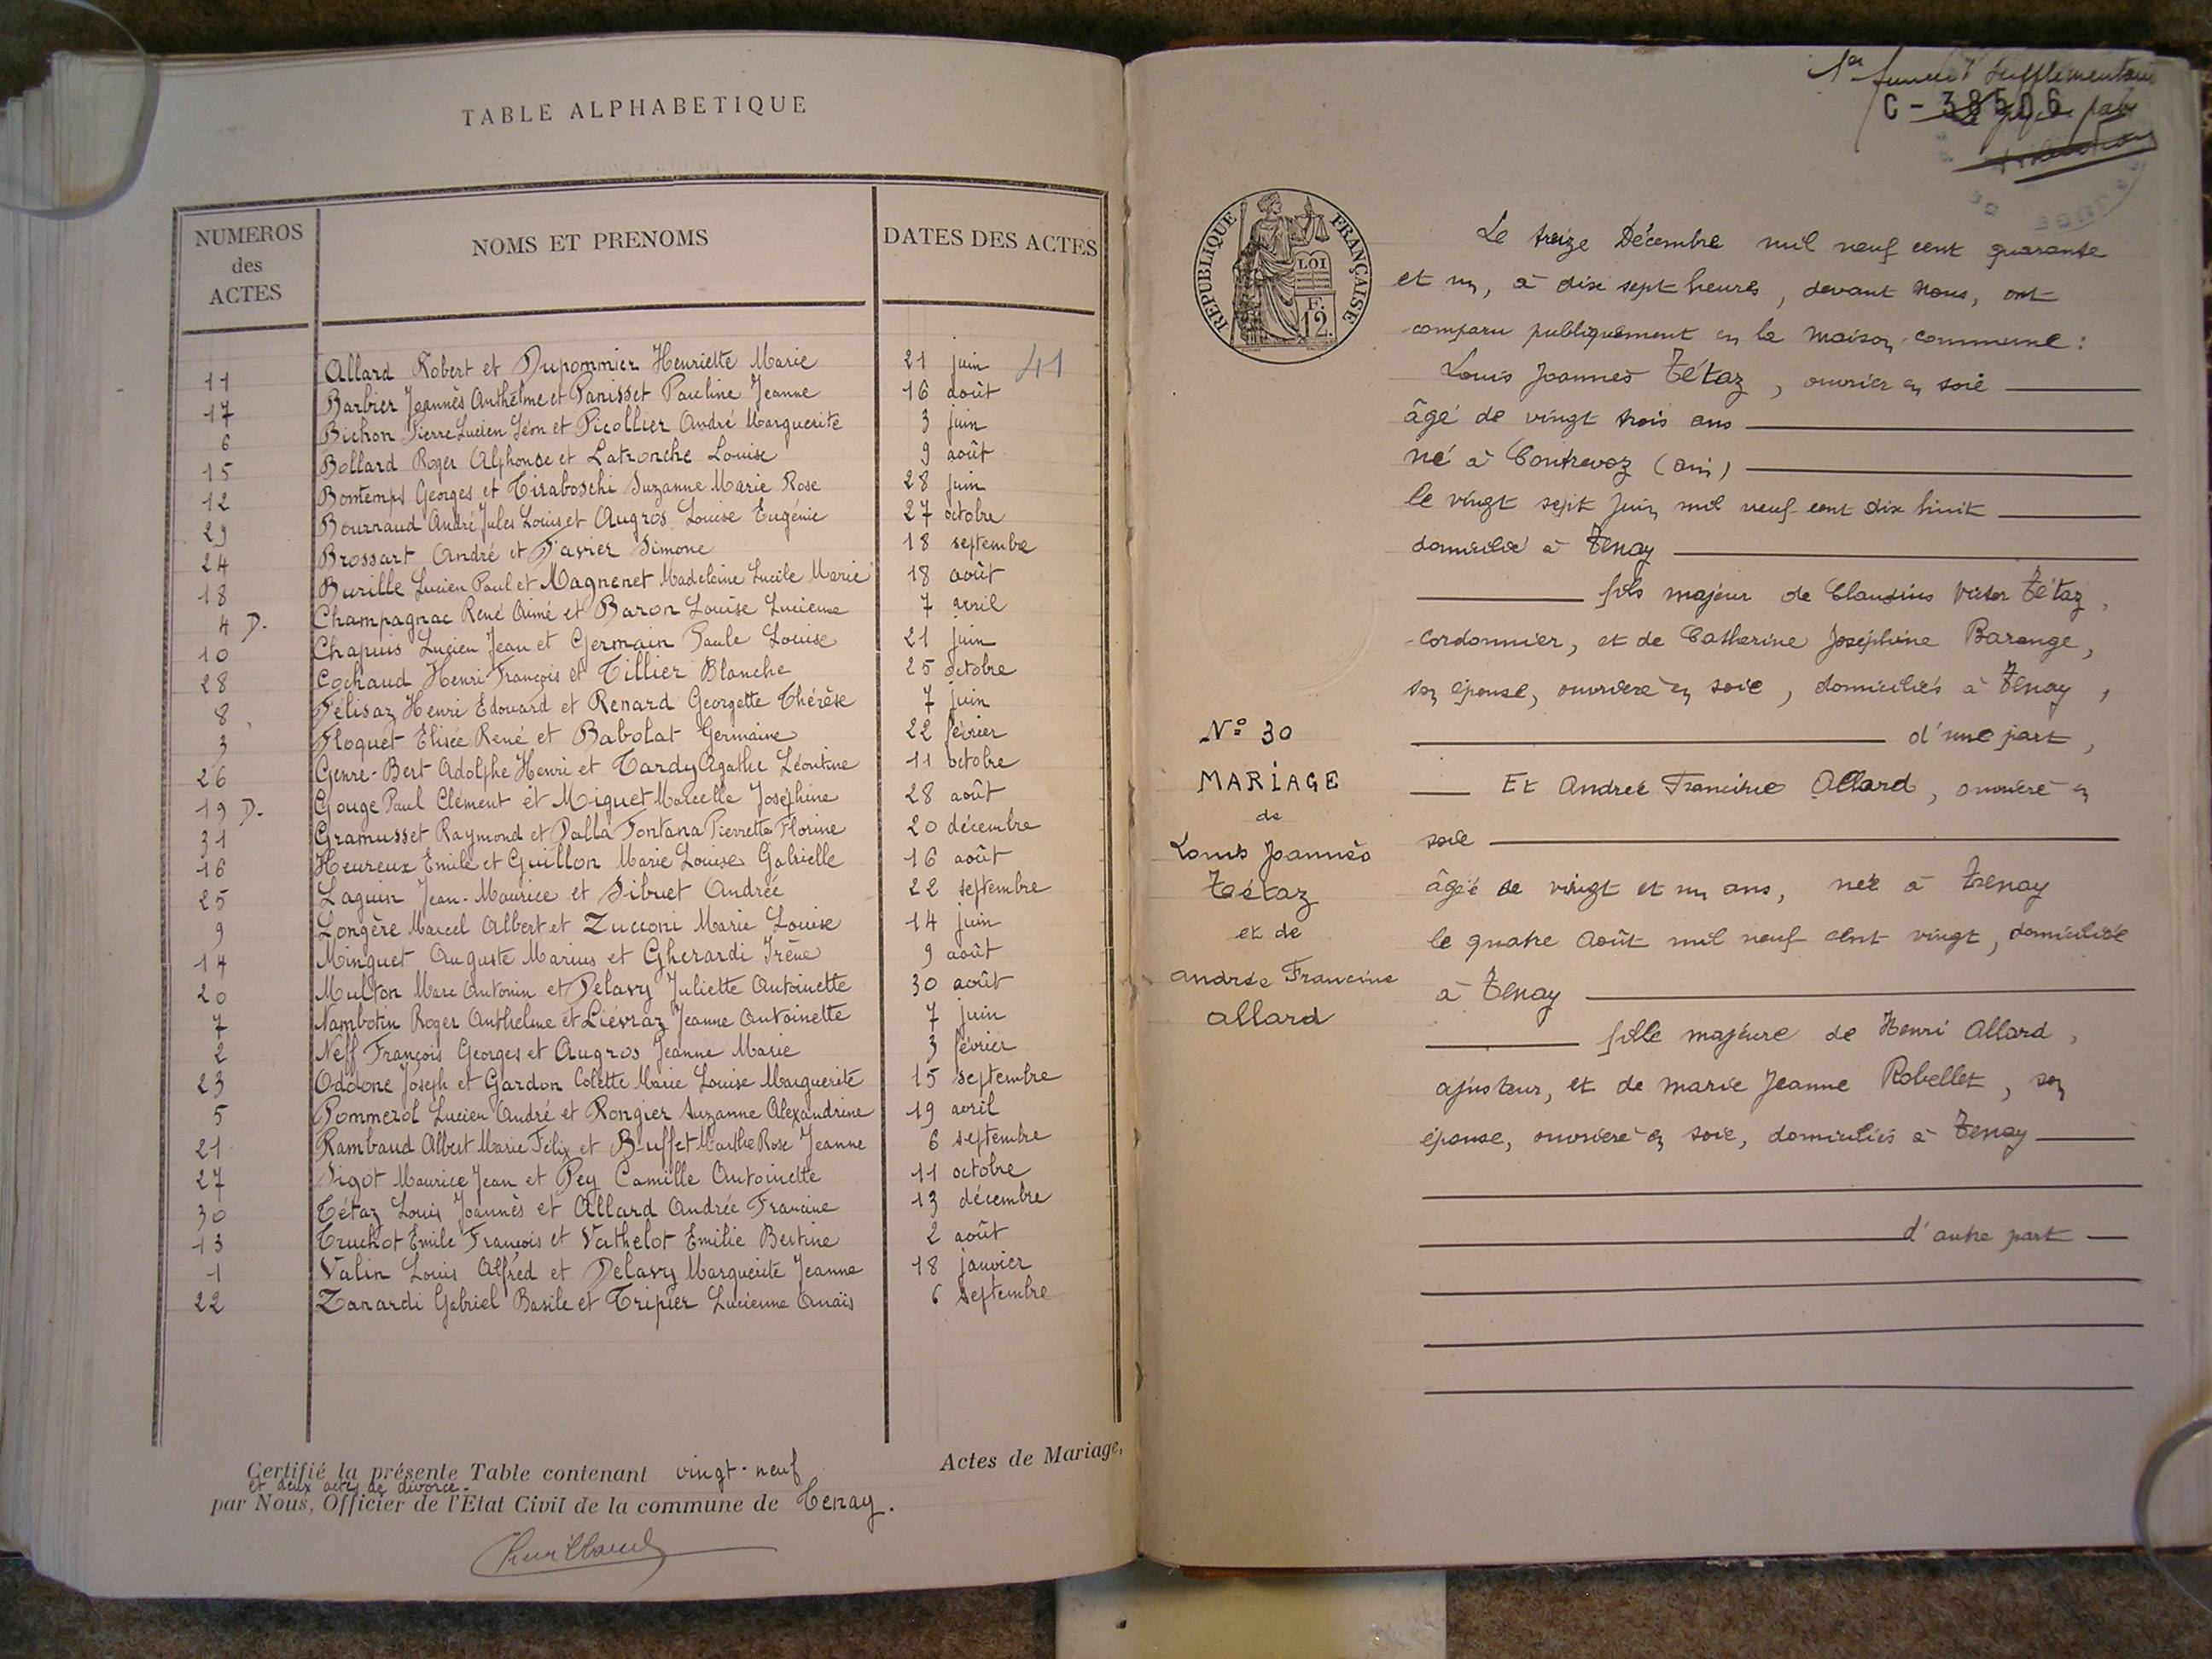 TABLE ALPHABETIQUE
NUMEROS des ACTES
NOMS ET PRENOMS
DATES DES ACTES
11 Allard Robert et Dupommier Henriette Marie 21 juin 41
17 Barbier Joannès Anthelme et Panisset Pauline Jeanne 16 août
6 Bichon Pierre Lucien Léon et Picollier André Marguerite 3 juin
15 Bollard Roger Alphonse et Latronche Louise 9 août
12 Bontemps Georges et Tiraboschi Suzanne Marie Rose 28 juin
29 Bournaud André Jules Louis et Augros Louise Eugénie 27 octobre
24 Brossart André et Favier Simone 18 septembre
18 Burille Lucien Paul et Magnenet Madeleine Lucile Marie 18 août
4 D. Champagnac René Aimé et Baron Louise Lucienne 7 avril
10 Chapuis Lucien Jean et Germain Paule Louise 21 juin
28 Cochaud Henri François et Tillier Blanche 25 octobre
8 Félisaz Henri Edouard et Renard Georgette Thérèse 7 juin
3 Floquet Elisée René et Babolat Germaine 22 février
26 Genre-Bert Adolphe Henri et Tardy Agathe Léontine 11 octobre
19 D. Gouge Paul Clément et Miguet Marcelle Joséphine 28 août
31 Gramusset Raymond et Dalla Fontana Pierrette Florine 20 décembre
16 Heureux Emile et Guillon Marie Louise Gabrielle 16 août
25 Laguin Jean-Maurice et Sibuet Andrée 22 septembre
9 Longère Marcel Albert et Zucconi Marie Louise 14 juin
14 Minguet Auguste Marius et Gherardi Irène 9 août
20 Multon Marc Antonin et Delavy Juliette Antoinette 30 août
7 Nambotin Roger Anthelme et Liévraz Jeanne Antoinette 7 juin
2 Neff François Georges et Augros Jeanne Marie 3 février
23 Oddone Joseph et Gardon Colette Marie Louise Marguerite 15 septembre
5 Pommerol Lucien André et Rongier Suzanne Alexandrine 19 avril
21 Rambaud Albert Marie Félix et Buffet Marthe Rose Jeanne 6 septembre
27 Sigot Maurice Jean et Pey Camille Antoinette 11 octobre
30 Tétaz Louis Joannès et Allard Andrée Francine 13 décembre
13 Truchot Emile François et Vathelot Emilie Bertine 2 août
1 Valin Louis Alfred et Delavy Marguerite Jeanne 18 janvier
22 Zanardi Gabriel Basile et Tripier Lucienne Anaïs 6 septembre
Certifié la présente Table contenant vingt-neuf Actes de Mariage,
et deux actes de divorce.
par Nous, Officier de l'Etat Civil de la commune de Tenay.
1er supplémentaire
C - 38506
REPUBLIQUE FRANÇAISE
LOI
F.
12.
Le treize Décembre mil neuf cent quarante
et un, à dix sept heures, devant Nous, ont
comparu publiquement en la maison commune :
Louis Joannès Tétaz, ouvrier en soie
âgé de vingt trois ans
né à Contrevoz (Ain)
le vingt sept Juin mil neuf cent dix huit
domicilié à Tenay
fils majeur de Claudius Victor Tétaz,
cordonnier, et de Catherine Joséphine Barange,
son épouse, ouvrière en soie, domiciliés à Tenay,
d'une part,
Et Andrée Francine Allard, ouvrière en
soie
âgée de vingt et un ans, née à Tenay
le quatre Août mil neuf cent vingt, domiciliée
à Tenay
fille majeure de Henri Allard,
ajusteur, et de Marie Jeanne Robellet, son
épouse, ouvrière en soie, domiciliés à Tenay
d'autre part
N° 30
MARIAGE
de
Louis Joannès
Tétaz
et de
Andrée Francine
Allard